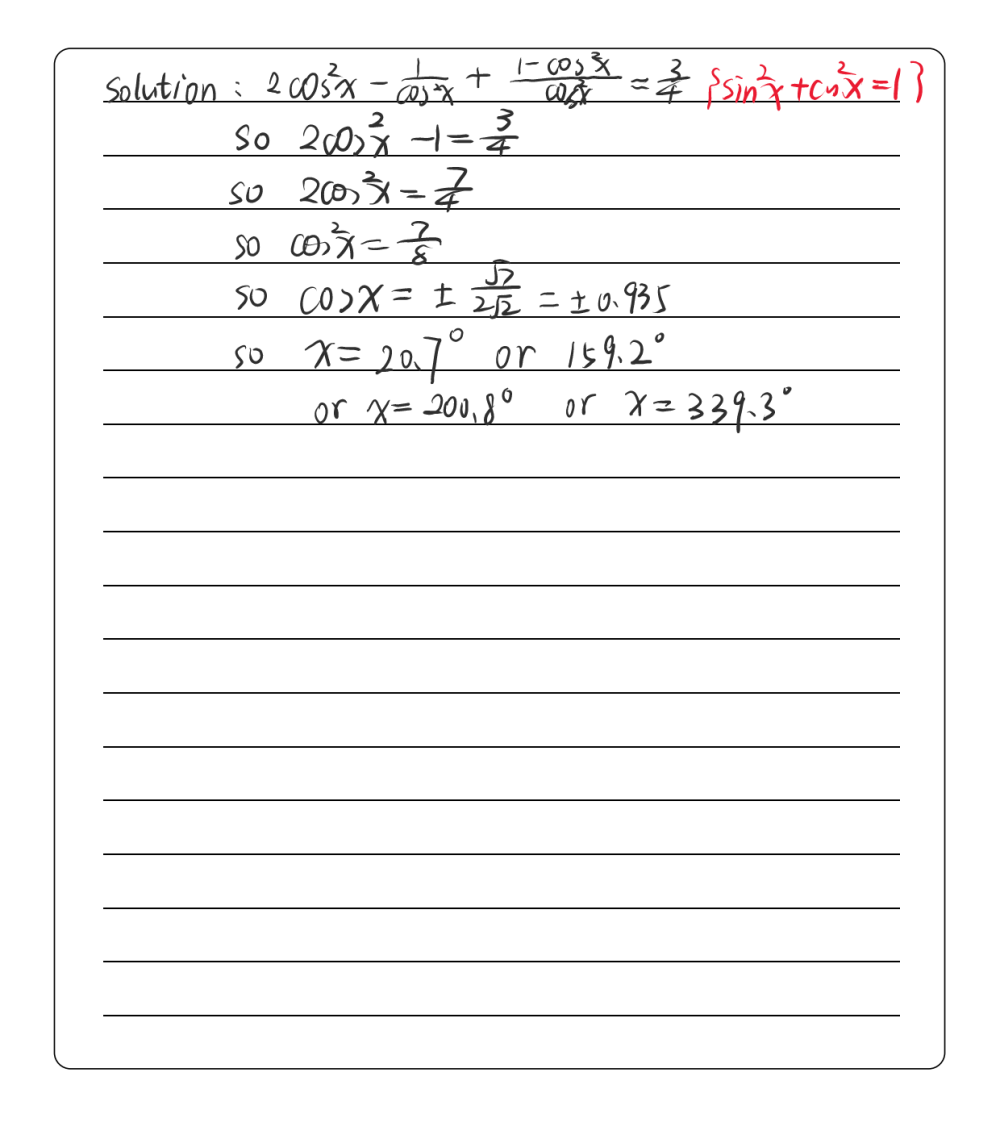 Solution : 2cos²x - 1/cos²x + (1-cos²x)/cos²x = 3/4 {sin²x+cos²x=1}
so 2cos²x -1 = 3/4
so 2cos²x = 7/4
so cos²x = 7/8
so cosx = ± √7/2√2 = ±0.935
so x= 20.7° or 159.2°
or x= 200.8° or x= 339.3°